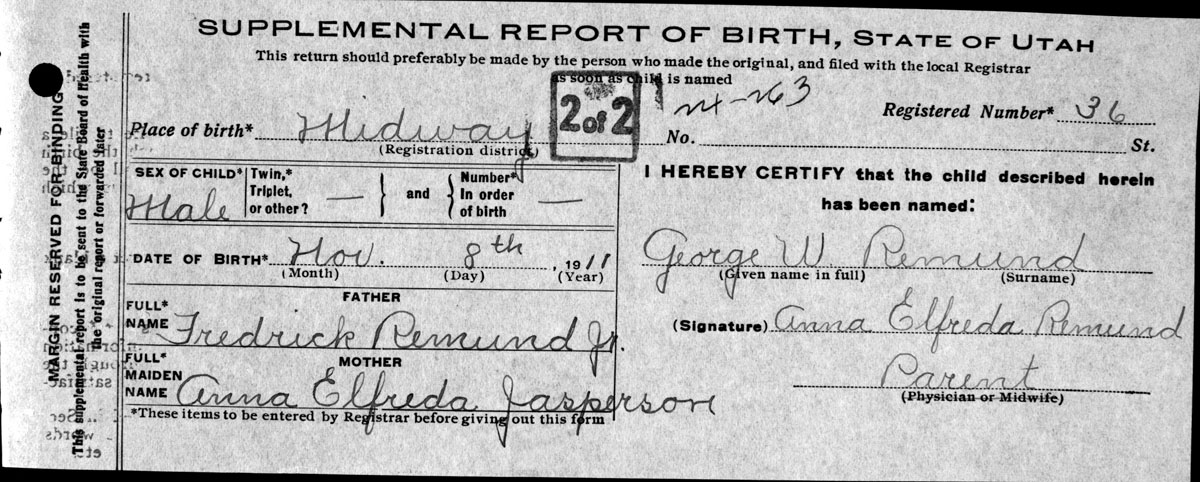 SUPPLEMENTAL REPORT OF BIRTH, STATE OF UTAH
This return should preferably be made by the person who made the original, and filed with the local Registrar
as soon as child is named
2 of 2
24-263
Registered Number* 36
Place of birth* Midway
No. St.
(Registration district)
SEX OF CHILD* Male
Twin,* Triplet, or other? —
and
Number* In order of birth —
DATE OF BIRTH* Nov. 8th, 1911
(Month) (Day) (Year)
FATHER
FULL* NAME Fredrick Remund Jr.
MOTHER
FULL* MAIDEN NAME Anna Elfreda Jasperson
*These items to be entered by Registrar before giving out this form
I HEREBY CERTIFY that the child described herein
has been named:
George W. Remund
(Given name in full) (Surname)
(Signature) Anna Elfreda Remund
Parent
(Physician or Midwife)
MARGIN RESERVED FOR BINDING
This supplemental report is to be sent to the State Board of Health with
the original report or forwarded later